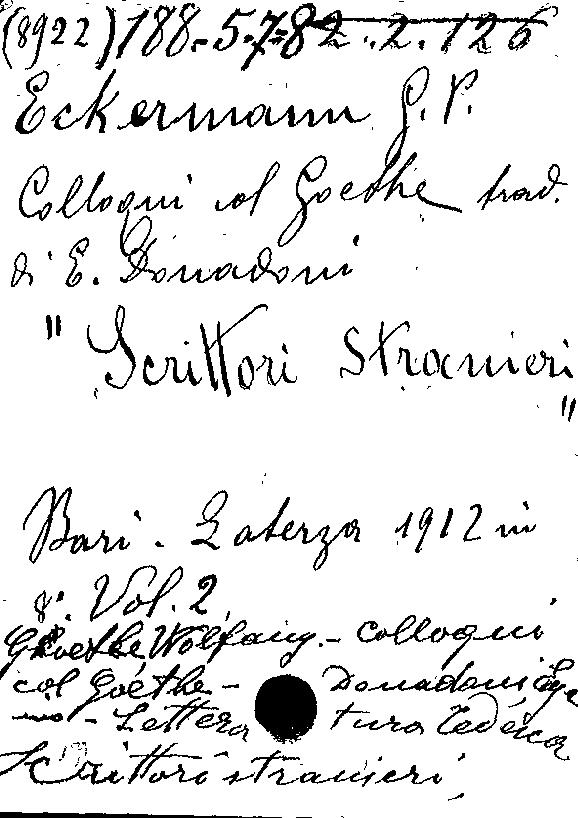 (8922) 188.-5-7-8 2.2.126
Eckermann G. P.
Colloqui col Goethe trad.
di E. Donadoni
"Scrittori stranieri
"
Bari - Laterza 1912 in
8°. Vol. 2
Goethe Wolfang.- colloqui
col Goethe - Donadoni Euge
nio - Lettera tura Tedesca
Scrittori stranieri